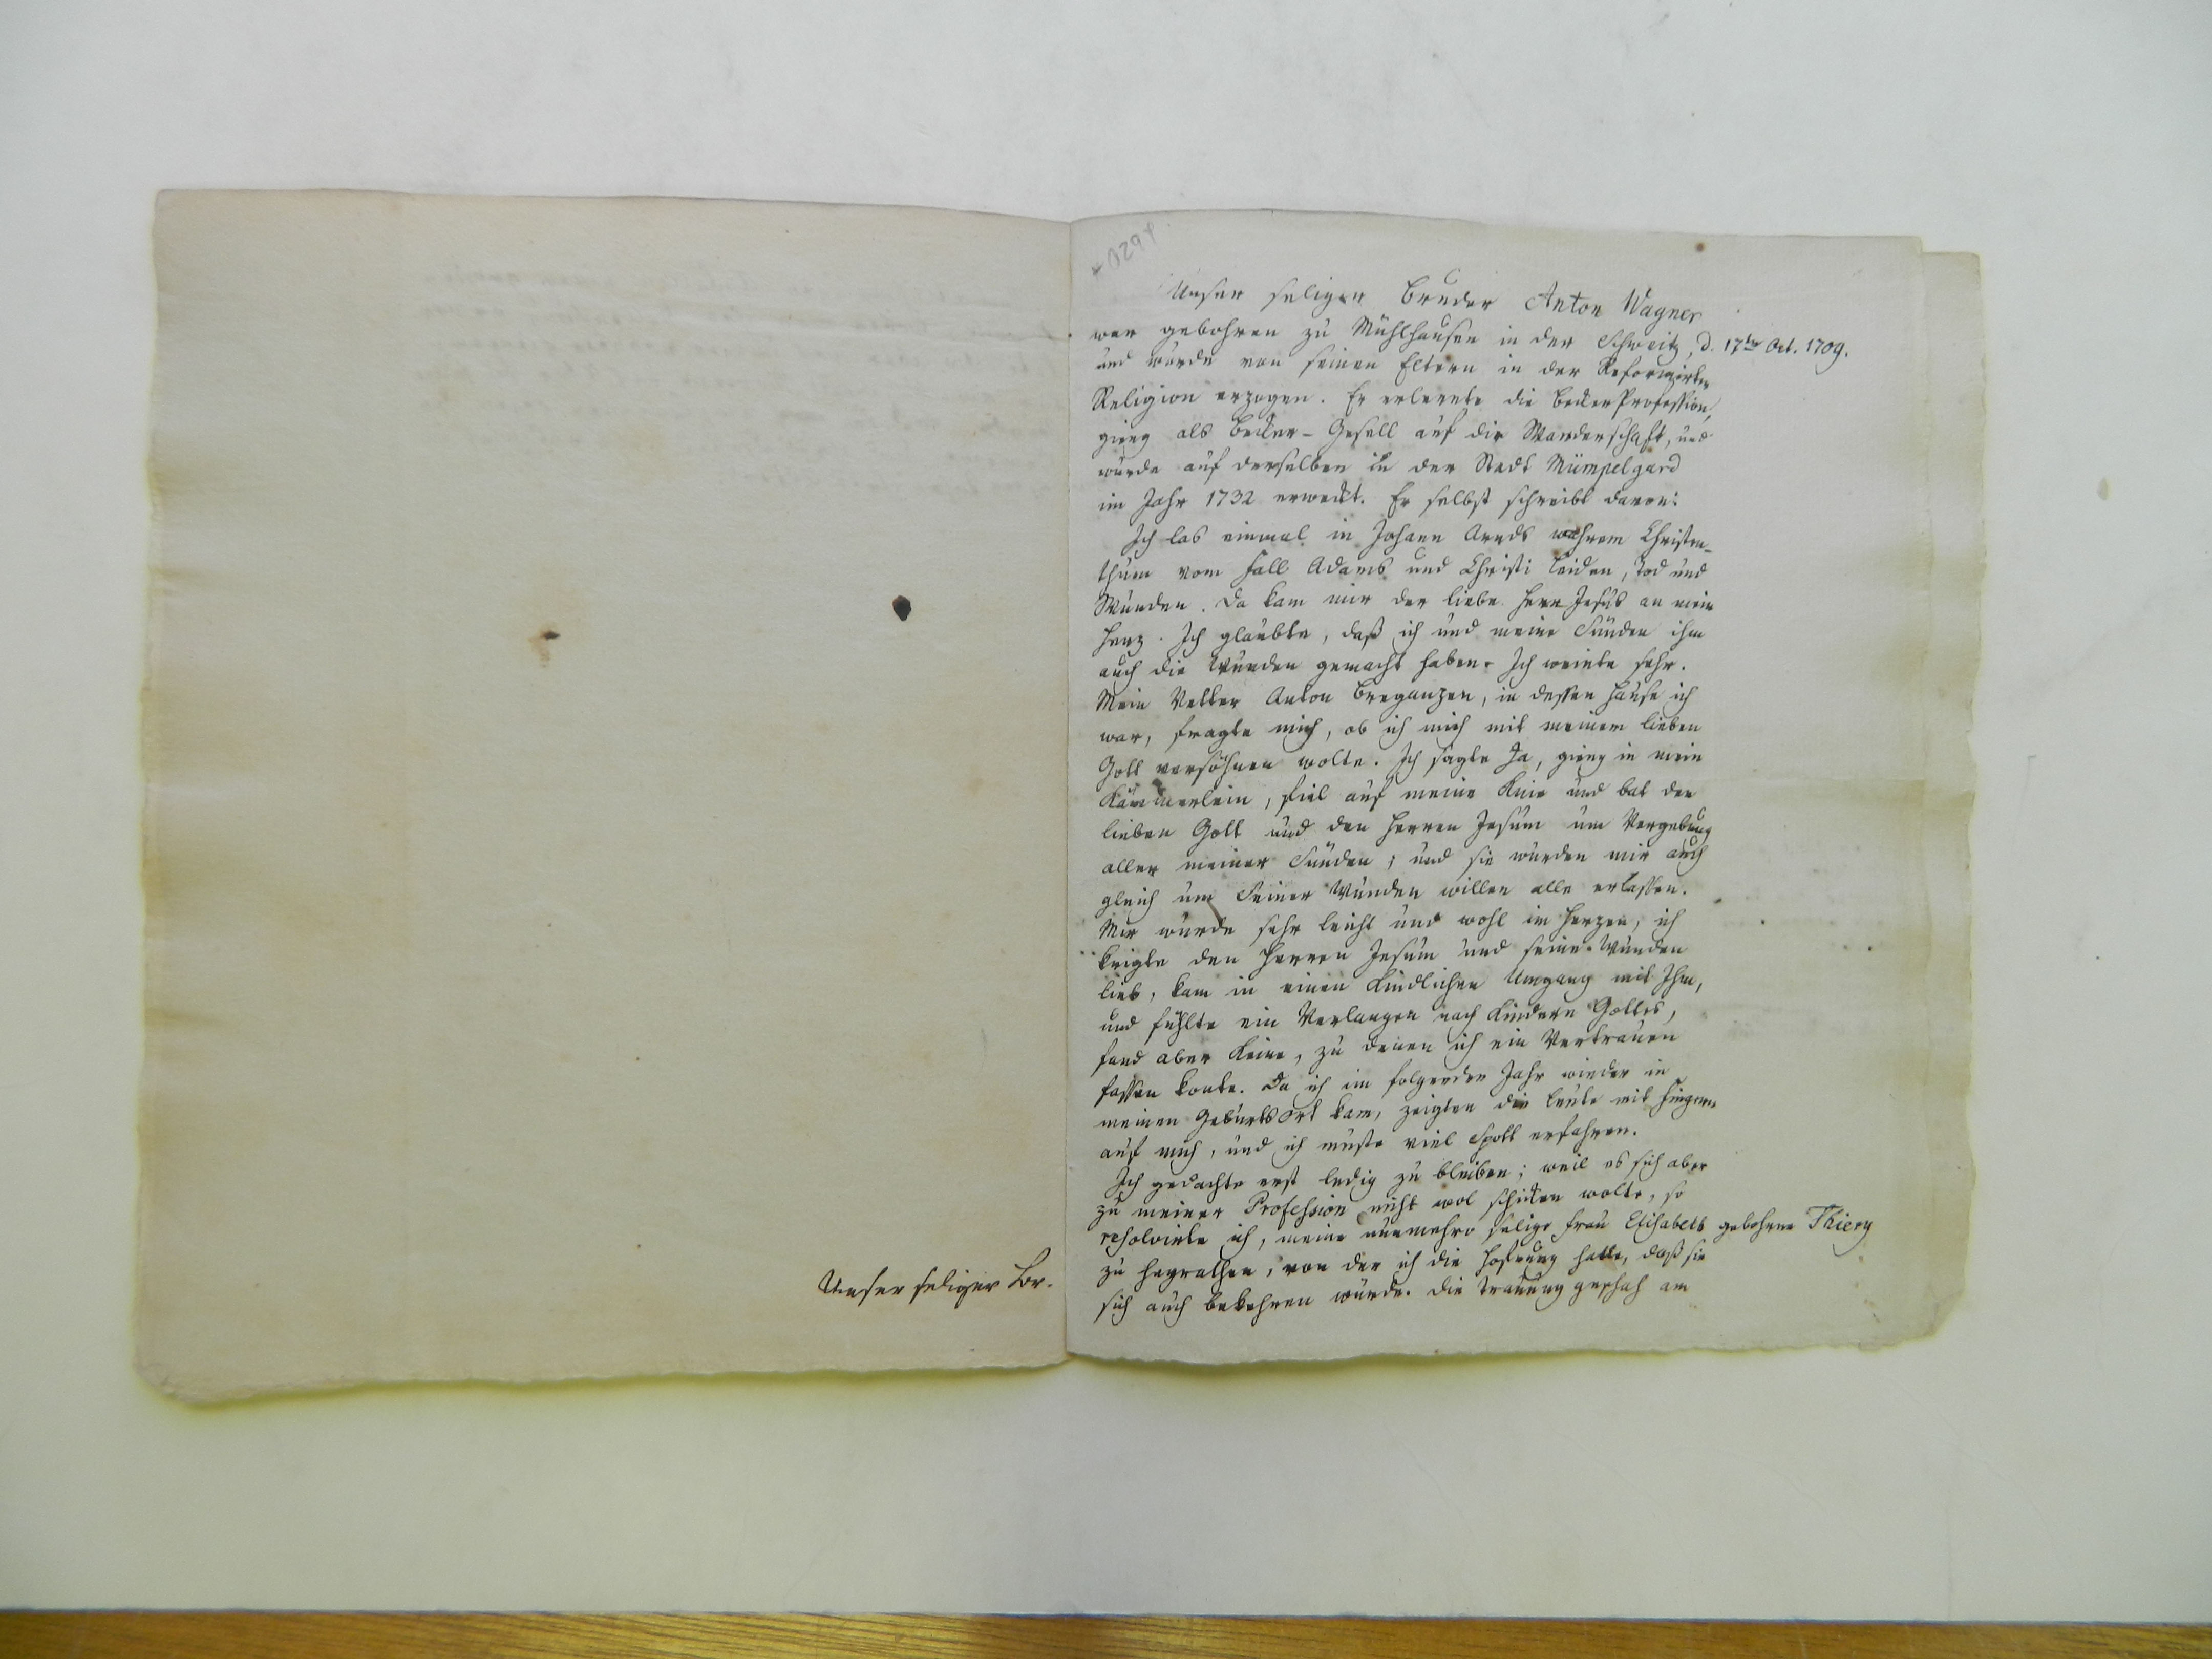 Unser seliger Br.
Unser seliger Bruder Anton Wagner
war gebohren zu Mühlhausen in der Schweitz, d. 17ten Oct. 1709.
und wurde von seinen Eltern in der Reformirten
Religion erzogen. Er erlernte die Becker Profession,
gieng als Becker-Gesell auf die Wanderschaft, und
wurde auf derselben in der Stadt Mümpelgard
im Jahr 1732 erweckt. Er selbst schreibt davon:
Ich las einmal in Johann Arnds wahrem Christen-
thum vom Fall Adams und Christi Leiden, Tod und
Wunden. Da kam mir der liebe Herr Jesus an mein
Herz. Ich glaubte, daß ich und meine Sünden ihm
auch die Wunden gemacht haben. Ich weinte sehr.
Mein Vetter Anton Breganzer, in dessen Hause ich
war, fragte mich, ob ich mich mit meinem lieben
Gott versöhnen wolte. Ich sagte Ja, gieng in mein
Kämmerlein, fiel auf meine Knie und bat den
lieben Gott und den Herren Jesum um Vergebung
aller meiner Sünden; und sie wurden mir auch
gleich um Seiner Wunden willen alle erlassen.
Mir wurde sehr leicht und wohl im Herzen, ich
krigte den Herren Jesum und seine Wunden
lieb, kam in einen Kindlichen Umgang mit Ihm,
und fühlte ein Verlangen nach Kindern Gottes,
fand aber Keine, zu denen ich ein Vertrauen
fassen konte. Da ich im folgenden Jahr wieder in
meinen Geburts Ort kam, zeigten die Leute mit Fingern
auf mich, und ich muste viel Spott erfahren.
Ich gedachte erst ledig zu bleiben; weil es sich aber
zu meiner Profession nicht wol schicken wolte, so
resolvirte ich, meine nunmehro selige Frau Elisabeth gebohrne Thiery
zu heyrathen, von der ich die Hofnung hatte, daß sie
sich auch bekehren würde. Die Trauung geschah am